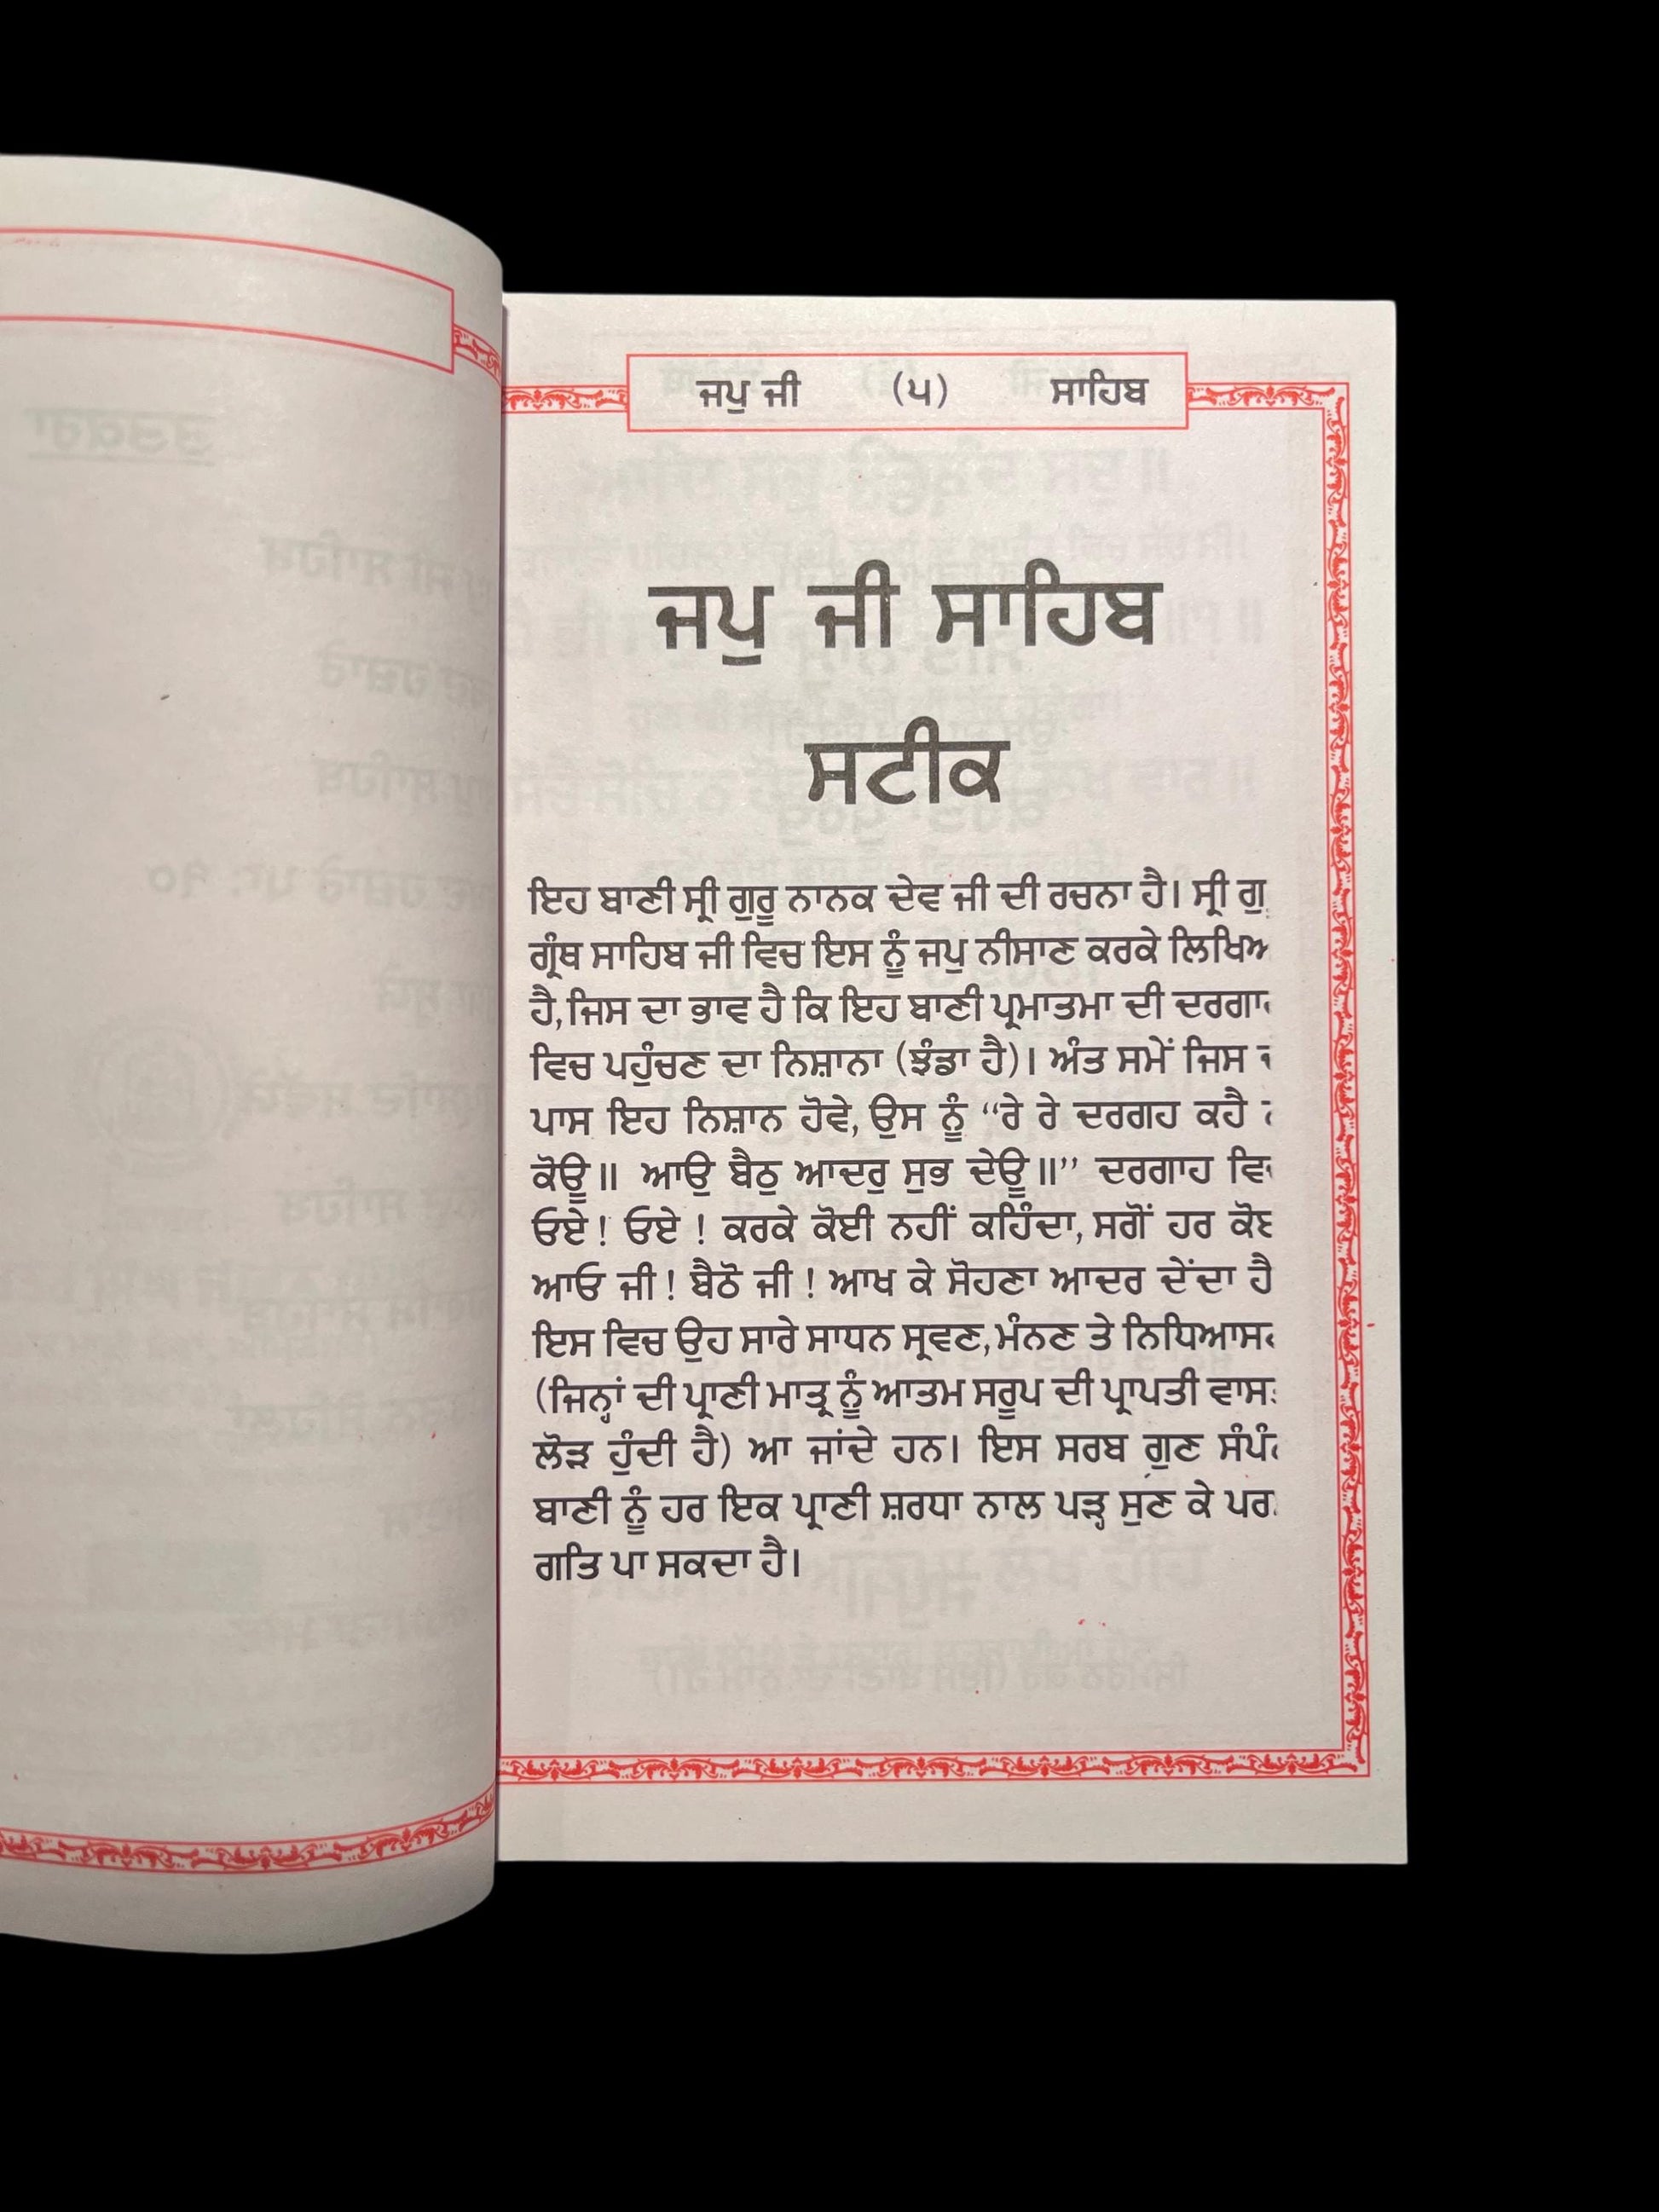 ਜਪੁ ਜੀ (੫) ਸਾਹਿਬ
ਜਪੁ ਜੀ ਸਾਹਿਬ
ਸਟੀਕ
ਇਹ ਬਾਣੀ ਸ੍ਰੀ ਗੁਰੂ ਨਾਨਕ ਦੇਵ ਜੀ ਦੀ ਰਚਨਾ ਹੈ। ਸ੍ਰੀ ਗੁ
ਗ੍ਰੰਥ ਸਾਹਿਬ ਜੀ ਵਿਚ ਇਸ ਨੂੰ ਜਪੁ ਨੀਸਾਣ ਕਰਕੇ
ਹੈ, ਜਿਸ ਦਾ ਭਾਵ ਹੈ ਕਿ ਇਹ ਬਾਣੀ ਪ੍ਰਮਾਤਮਾ ਦੀ
ਵਿਚ ਪਹੁੰਚਣ ਦਾ ਨਿਸ਼ਾਨਾ (ਝੰਡਾ ਹੈ)। ਅੰਤ ਸਮੇਂ ਜਿਸ
ਪਾਸ ਇਹ ਨਿਸ਼ਾਨ ਹੋਵੇ, ਉਸ ਨੂੰ “ਰੇ ਰੇ ਦਰਗਹ ਕਹੈ
ਕੋਊ॥ ਆਉ ਬੈਠੁ ਆਦਰੁ ਸੁਭ ਦੇਊ॥” ਦਰਗਾਹ
ਓਏ! ਓਏ ! ਕਰਕੇ ਕੋਈ ਨਹੀਂ ਕਹਿੰਦਾ, ਸਗੋਂ ਹਰ
ਆਓ ਜੀ! ਬੈਠੋ ਜੀ ! ਆਖ ਕੇ ਸੋਹਣਾ ਆਦਰ ਦੇਂਦਾ ਹੈ
ਇਸ ਵਿਚ ਉਹ ਸਾਰੇ ਸਾਧਨ ਸ੍ਰਵਣ, ਮੰਨਣ ਤੇ
(ਜਿਨ੍ਹਾਂ ਦੀ ਪ੍ਰਾਣੀ ਮਾਤ੍ਰ ਨੂੰ ਆਤਮ ਸਰੂਪ ਦੀ ਪ੍ਰਾਪਤੀ
ਲੋੜ ਹੁੰਦੀ ਹੈ) ਆ ਜਾਂਦੇ ਹਨ। ਇਸ ਸਰਬ ਗੁਣ
ਬਾਣੀ ਨੂੰ ਹਰ ਇਕ ਪ੍ਰਾਣੀ ਸ਼ਰਧਾ ਨਾਲ ਪੜ੍ਹ ਸੁਣ ਕੇ ਪਰ
ਗਤਿ ਪਾ ਸਕਦਾ ਹੈ।